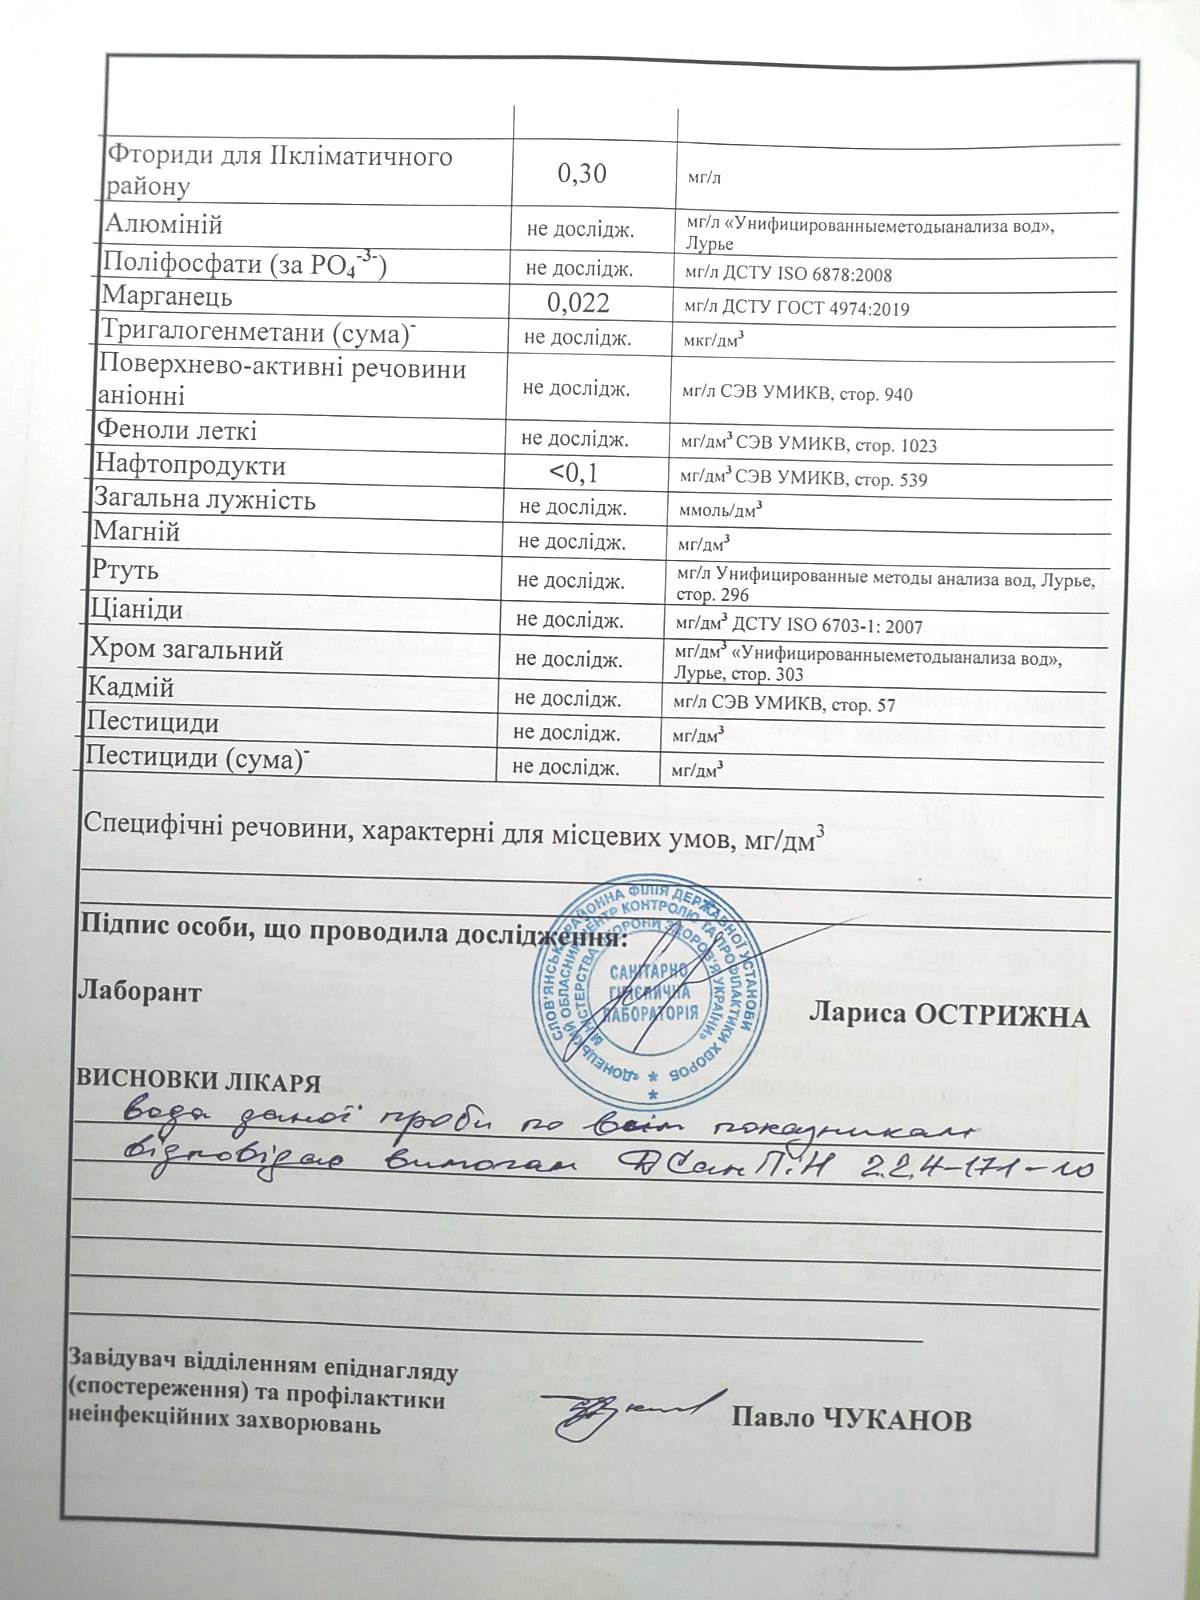 Фториди для ІІкліматичного
району
0,30
мг/л
Алюміній
не дослідж.
мг/л «Унифицированныеметодыанализа вод»,
Лурье
Поліфосфати (за PO₄⁻³⁻)
не дослідж.
мг/л ДСТУ ISO 6878:2008
Марганець
0,022
мг/л ДСТУ ГОСТ 4974:2019
Тригалогенметани (сума)⁻
не дослідж.
мкг/дм³
Поверхнево-активні речовини
аніонні
не дослідж.
мг/л СЭВ УМИКВ, стор. 940
Феноли леткі
не дослідж.
мг/дм³ СЭВ УМИКВ, стор. 1023
Нафтопродукти
<0,1
мг/дм³ СЭВ УМИКВ, стор. 539
Загальна лужність
не дослідж.
ммоль/дм³
Магній
не дослідж.
мг/дм³
Ртуть
не дослідж.
мг/л Унифицированные методы анализа вод, Лурье,
стор. 296
Ціаніди
не дослідж.
мг/дм³ ДСТУ ISO 6703-1: 2007
Хром загальний
не дослідж.
мг/дм³ «Унифицированныеметодыанализа вод»,
Лурье, стор. 303
Кадмій
не дослідж.
мг/л СЭВ УМИКВ, стор. 57
Пестициди
не дослідж.
мг/дм³
Пестициди (сума)⁻
не дослідж.
мг/дм³
Специфічні речовини, характерні для місцевих умов, мг/дм³
Підпис особи, що проводила дослідження:
СЛОВ'ЯНСЬКА РАЙОННА ФІЛІЯ ДЕРЖАВНОЇ УСТАНОВИ
«ДОНЕЦЬКИЙ ОБЛАСНИЙ ЦЕНТР КОНТРОЛЮ ТА ПРОФІЛАКТИКИ ХВОРОБ
МІНІСТЕРСТВА ОХОРОНИ ЗДОРОВ'Я УКРАЇНИ»
САНІТАРНО
ГІГІЄНІЧНА
ЛАБОРАТОРІЯ
Лаборант
Лариса ОСТРИЖНА
ВИСНОВКИ ЛІКАРЯ
вода даної проби по всім показникам
відповідає вимогам ДСанПіН 2.2.4-171-10
Завідувач відділенням епіднагляду
(спостереження) та профілактики
неінфекційних захворювань
Павло ЧУКАНОВ